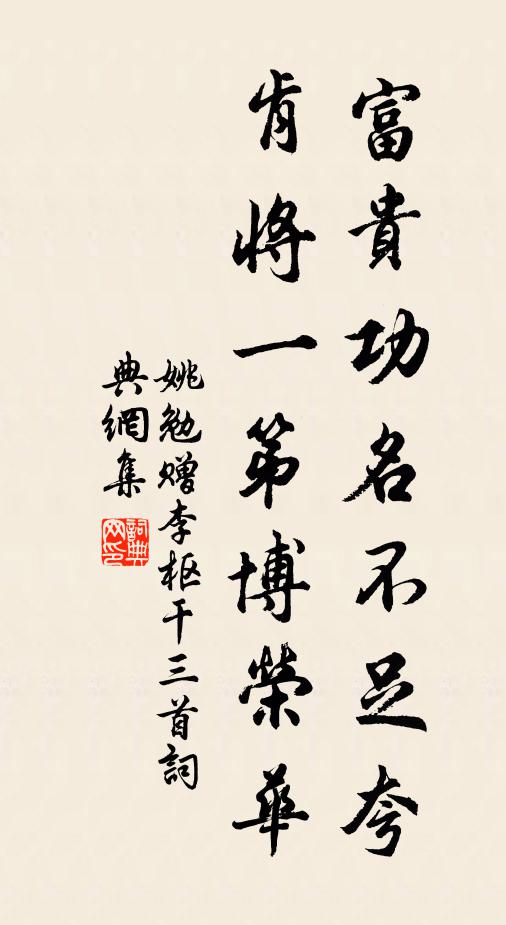 富貴功名不足夸
肯將一第博榮華
姚勉贈李樞干三首詞
典網集
詞典網印